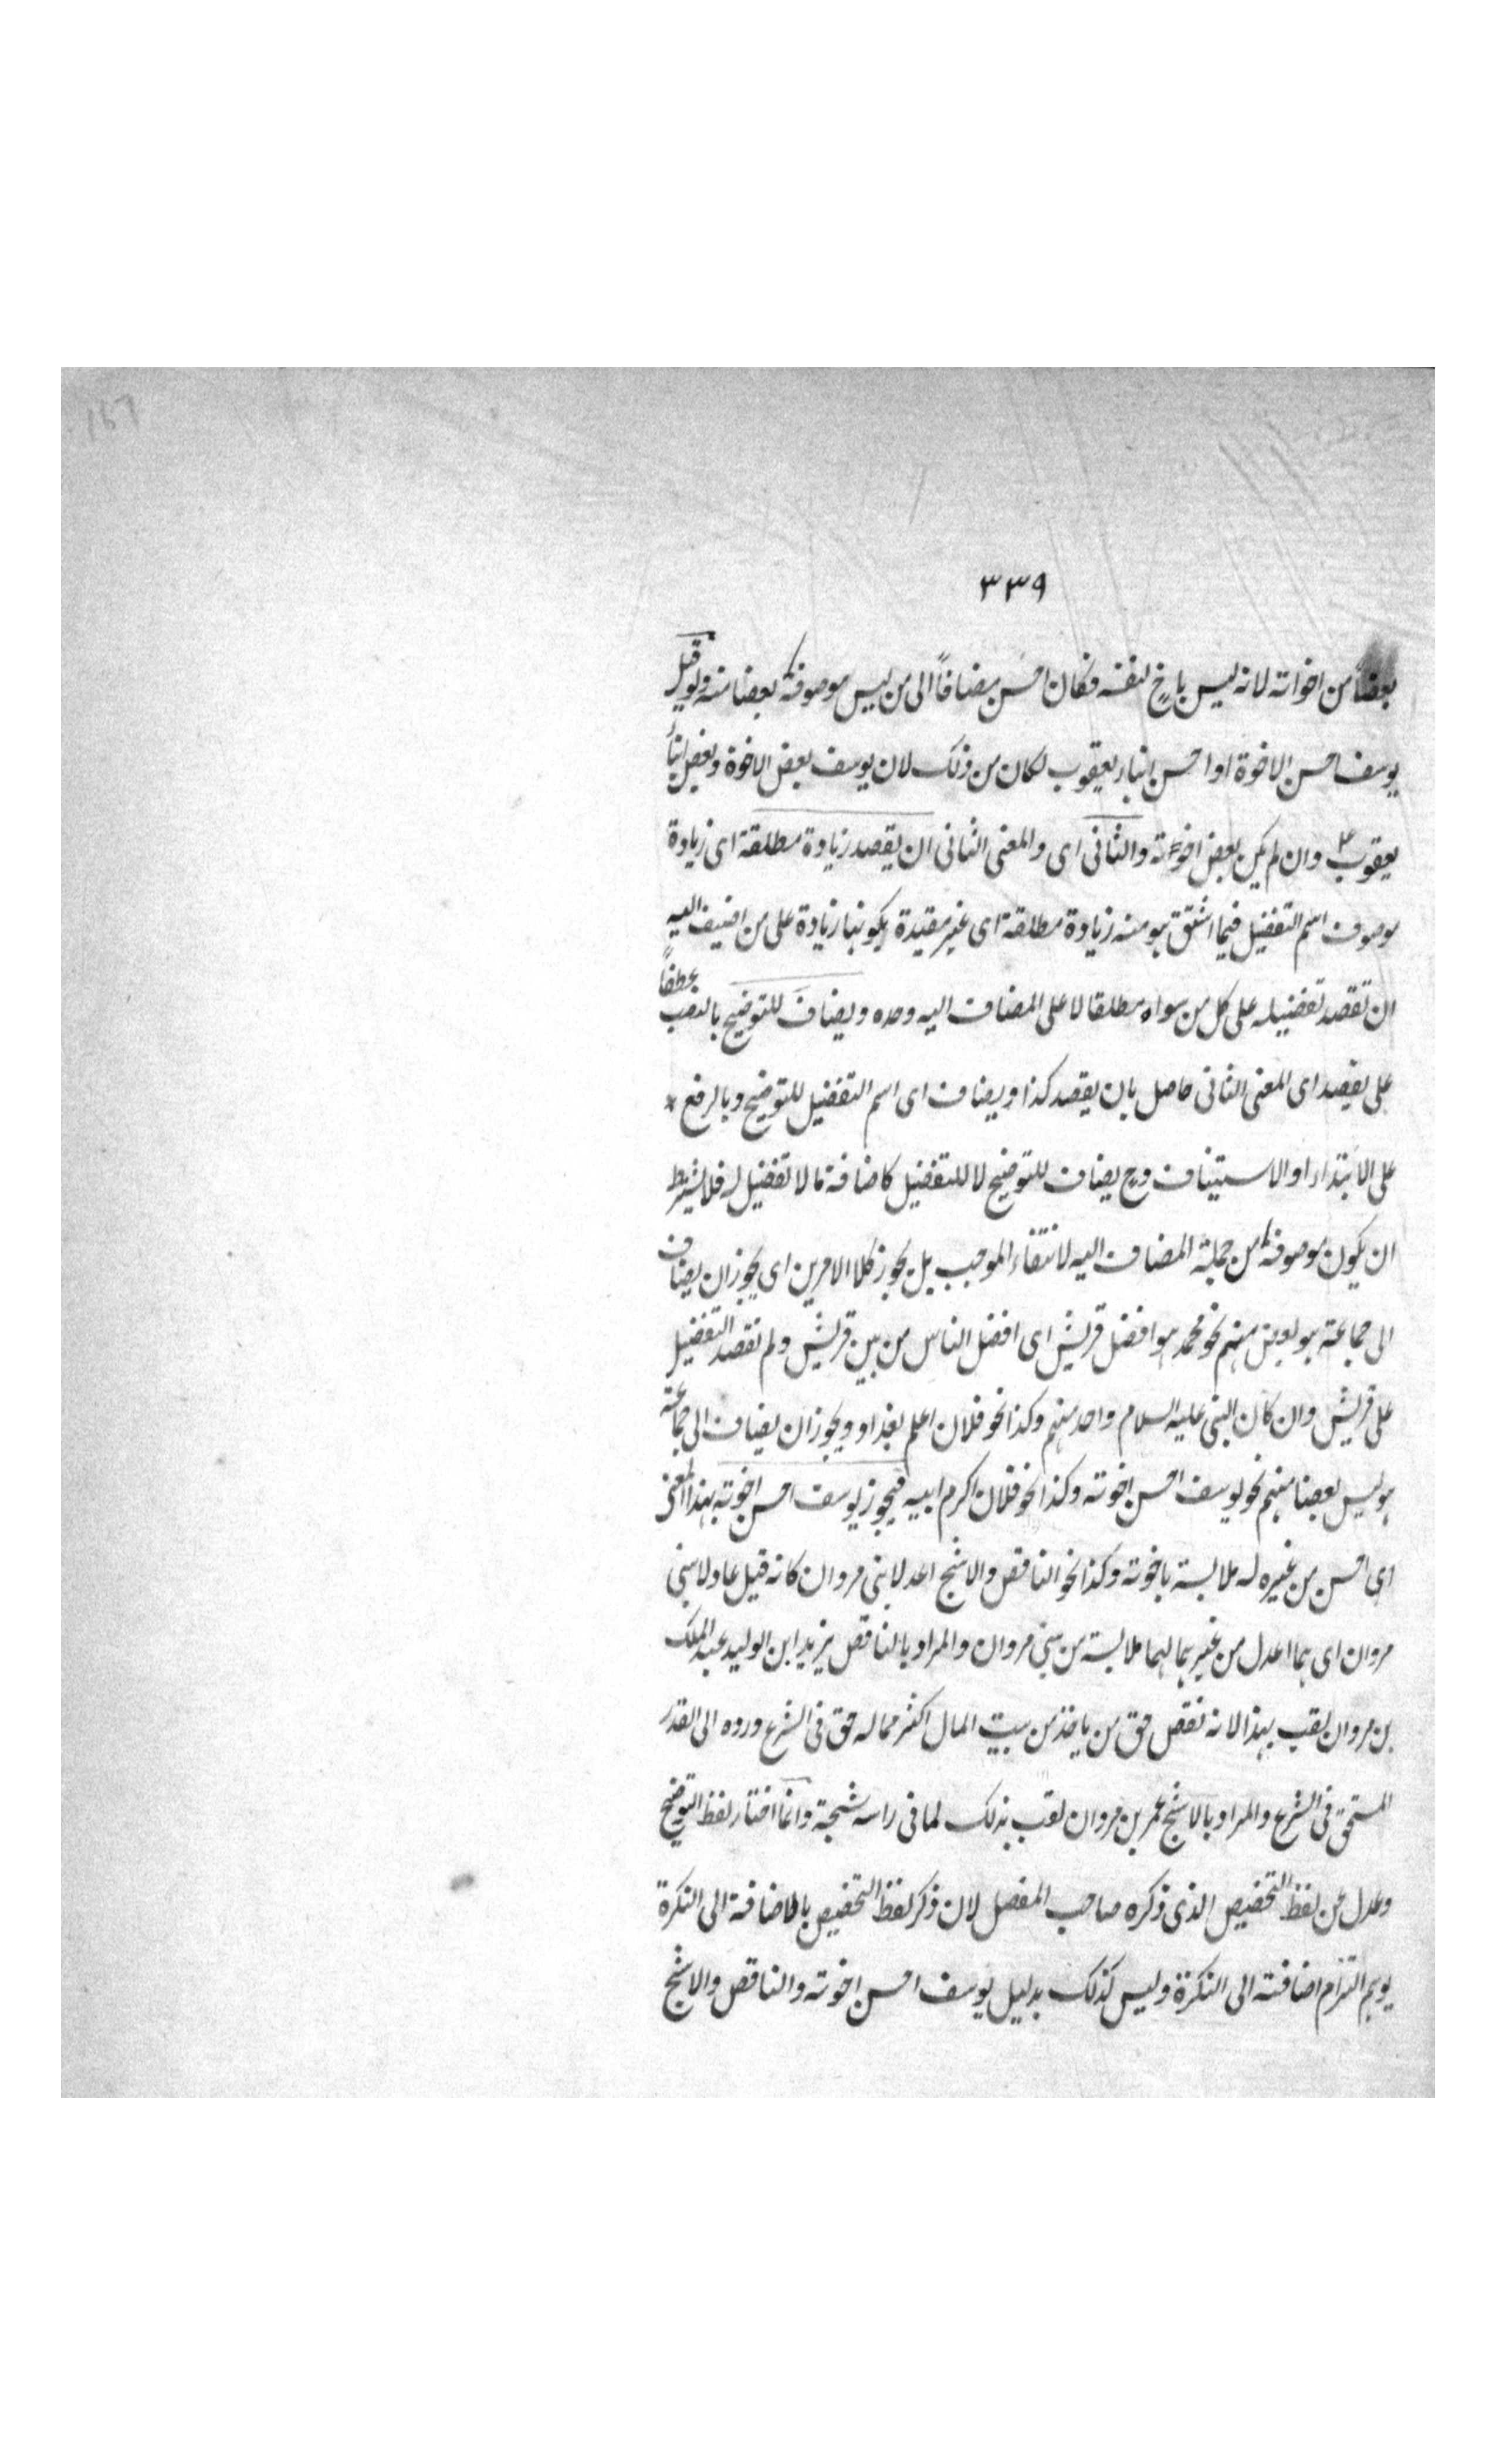 ٣٣٩
بعضا من اخوانه لانه ليس باخ لنفسه فكان احسن مضافاً الى من ليس موصوفه بعضا منه ولو قيل
يوسف احسن الاخوة او احسن ابناء يعقوب لكان من ذلك لان يوسف بعض الاخوة وبعض ابناء
يعقوب ع وان لم يكن بعض اخوته والثانى اى والمعنى الثانى ان يقصد زيادة مطلقة اى زيادة
موصوف اسم التفضيل فيما اشتق هو منه زيادة مطلقة اى غير مقيدة بكونها زيادة على من اضيف اليه
ان تقصد تفضيله على كل من سواه مطلقا لا على المضاف اليه وحده ويضاف للتوضيح بالنصب عطفاً
على يقصد اى المعنى الثانى حاصل بان يقصد كذا ويضاف اى اسم التفضيل للتوضيح وبالرفع
على الابتداء او الاستيناف وح يضاف للتوضيح لا للتفضيل كاضافة ما لا تفضيل له فلا يشترط
ان يكون موصوفه من جملة المضاف اليه لانتفاء الموجب بل يجوز كلا الامرين اى يجوز ان يضاف
الى جماعة هو بعض منهم نحو محمد هو افضل قريش اى افضل الناس من بين قريش ولم نقصد التفضيل
على قريش وان كان النبى عليه السلام واحد منهم وكذا نحو فلان اعلم بغداد ويجوز ان يضاف الى جماعة
هو ليس بعضا منهم نحو يوسف احسن اخوته وكذا نحو فلان اكرم ابيه فيجوز يوسف احسن اخوته بهذا المعنى
اى احسن من غيره له ملابسة باخوته وكذا نحو الناقص والاشج اعدلا بنى مروان كانه قيل عادلا بنى
مروان اى هما اعدل من غيرهما لهما ملابسة من بنى مروان والمراد بالناقص يزيد ابن الوليد عبد الملك
بن مروان لقب بهذا لانه نقص حق من ياخذ من بيت المال اكثر مما له حق فى الشرع ورده الى القدر
المستحق فى الشرع والمراد بالاشج عمر بن مروان لقب بذلك لما فى راسه شجة وانما اختار لفظ التوضيح
وعدل عن لفظ التخصيص الذى ذكره صاحب المفصل لان ذكر لفظ التخصيص بالاضافة الى النكرة
يوهم التزام اضافته الى النكرة وليس كذلك بدليل يوسف احسن اخوته والناقص والاشج